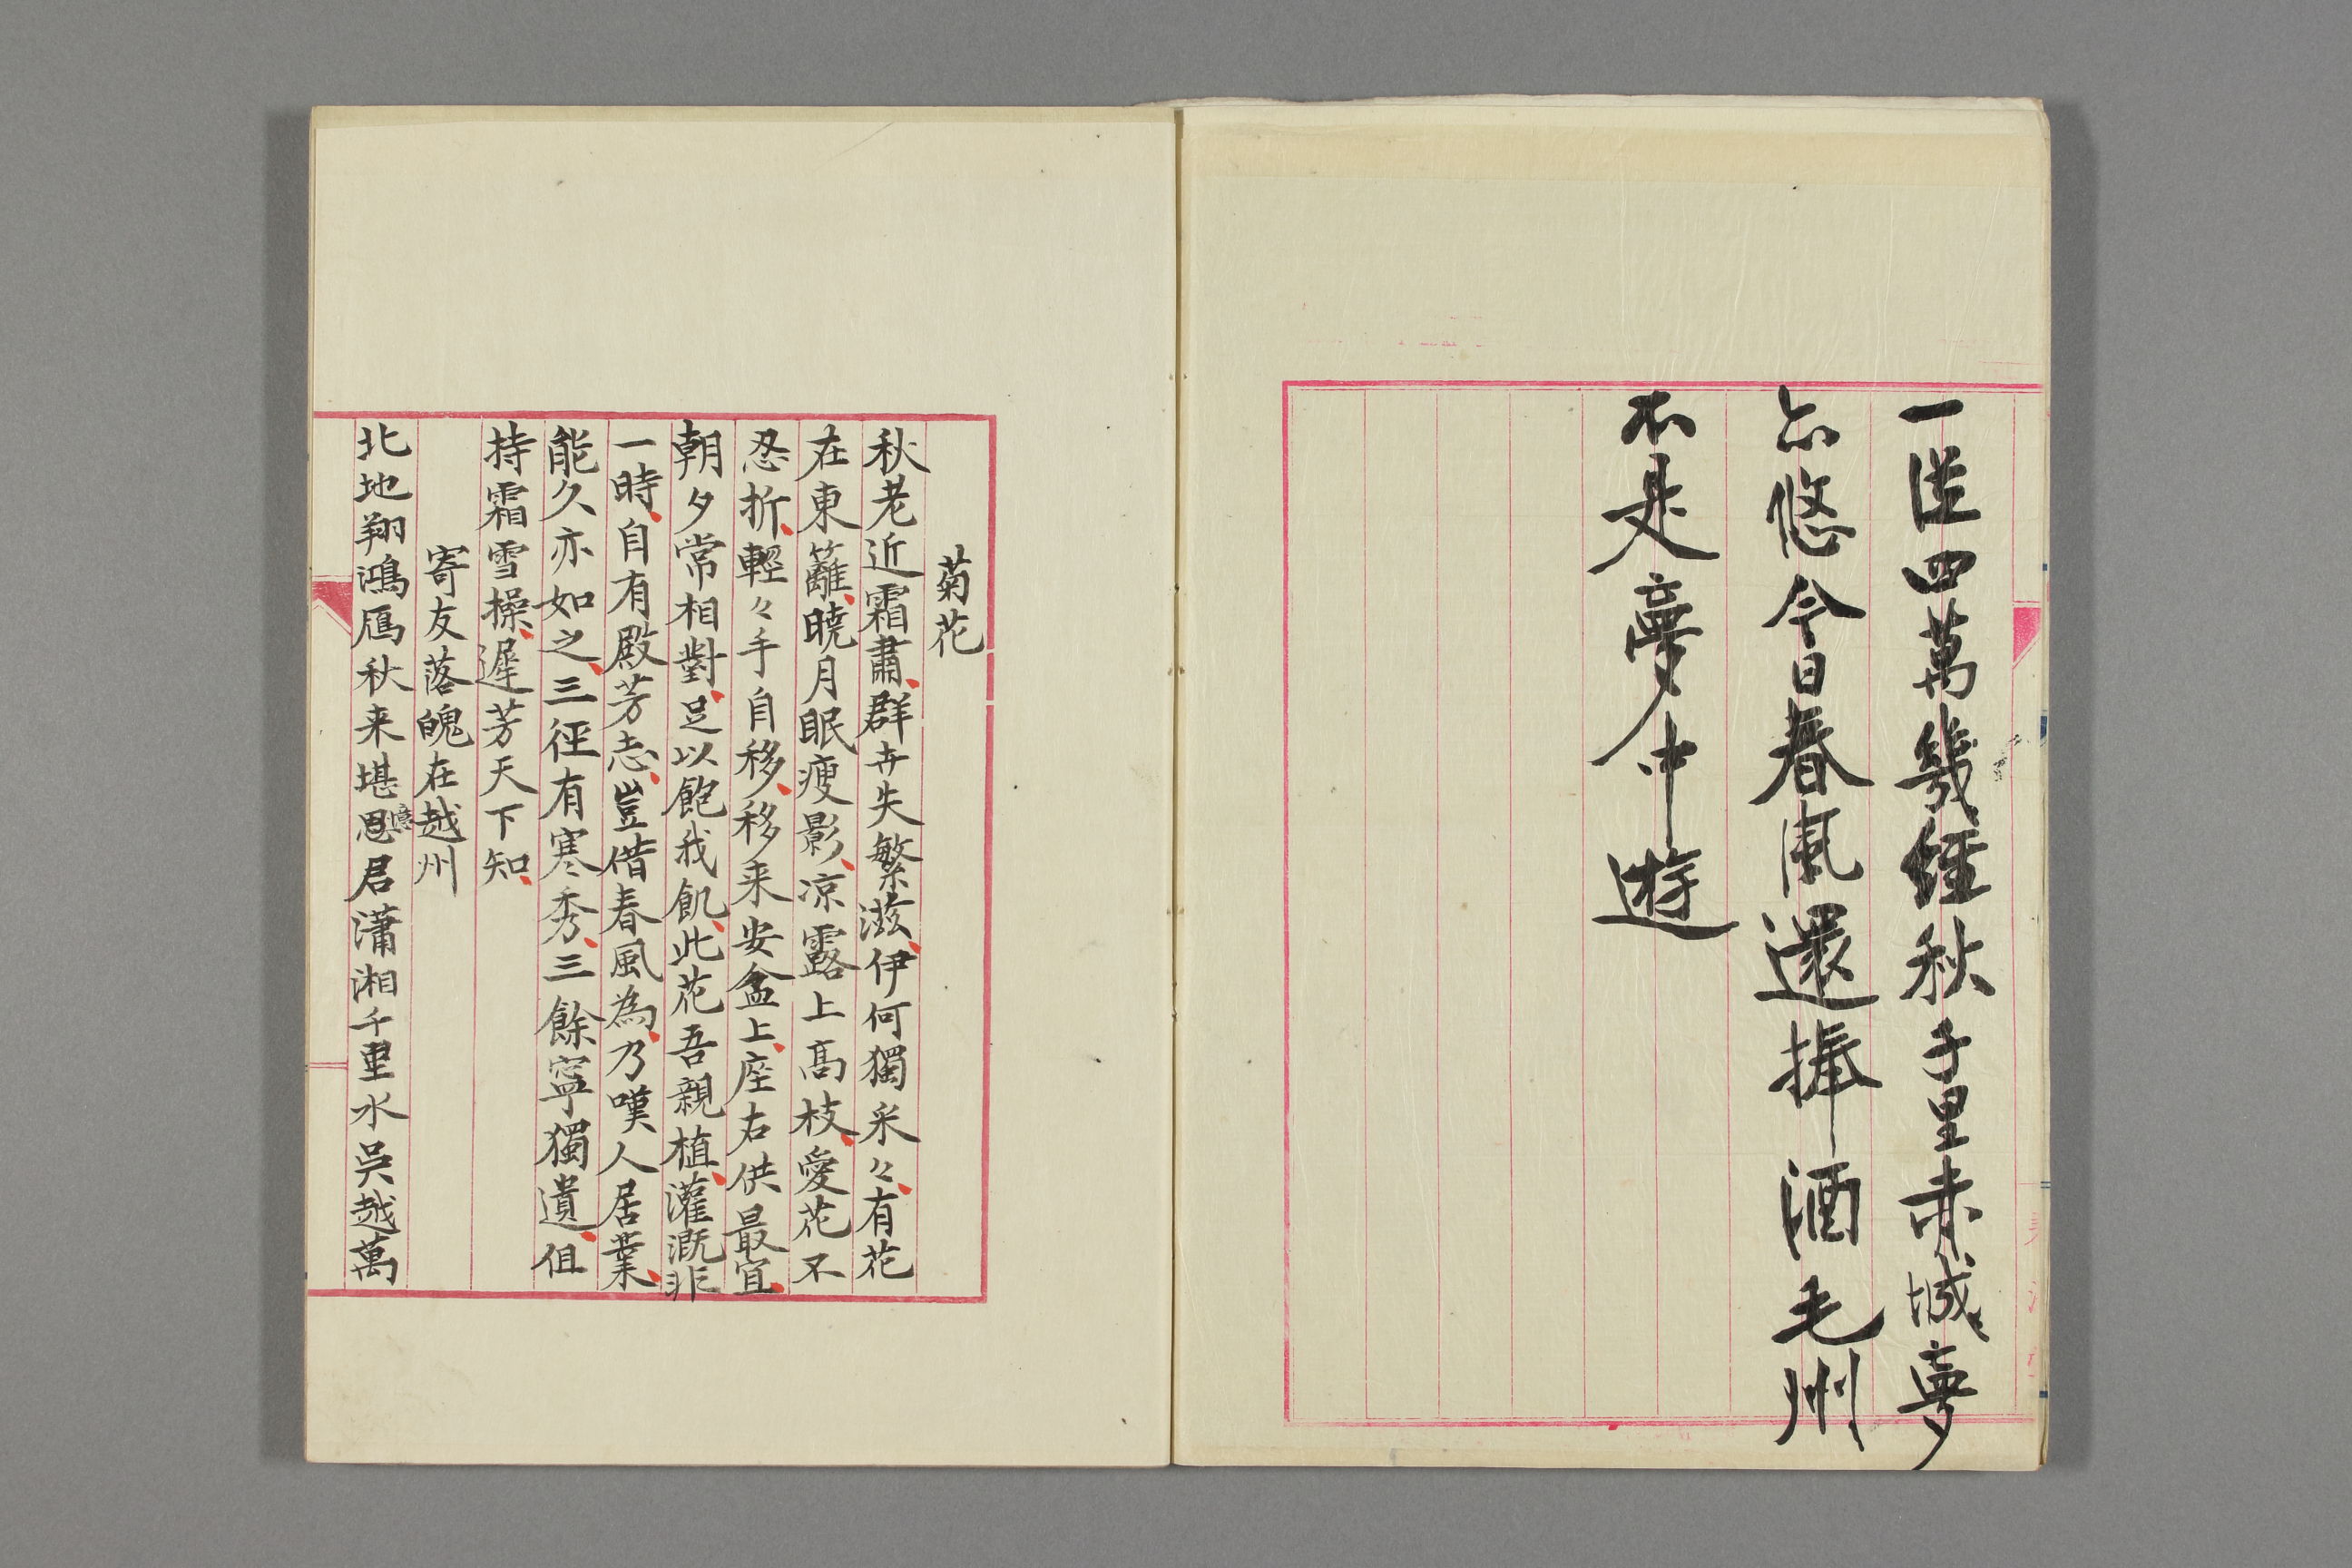 一送四萬幾經秋千里赤城夢
亦悠今日春風還捧酒毛州
不是夢中遊
菊花
秋老近霜肅群卉失繁滋伊何獨采々有花
在東籬曉月眠瘦影凉露上高枝愛花不
忍折輕々手自移移来安盆上座右供最宜
朝夕常相對足以飽我飢此花吾親植灌漑非
一時自有殿芳志豈借春風為乃嘆人居業
能久亦如之三徑有寒秀三餘寧獨遺但
持霜雪操遲芳天下知
寄友落魄在越州
北地翔鴻鴈秋来堪思憶君瀟湘千重水吳越萬